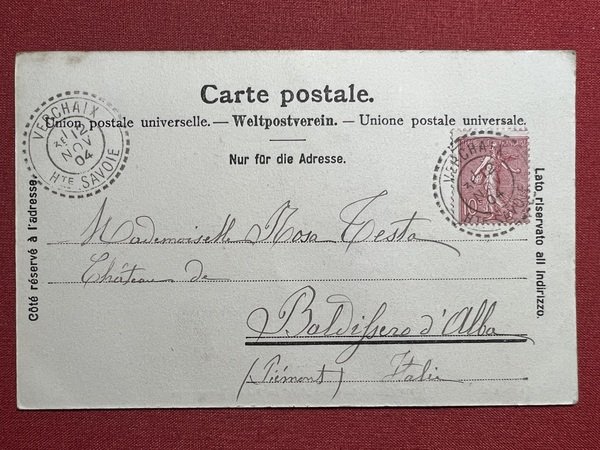 Carte postale.
Union postale universelle. — Weltpostverein. — Unione postale universale.
Nur für die Adresse.
VERCHAIX
12
NOV
04
HTE SAVOIE
VERCHAIX
04
Côté réservé à l'adresse.
Lato riservato all indirizzo.
Mademoiselle Rosa Testa
Château de
Baldissero d'Alba
(Piémont) Italie